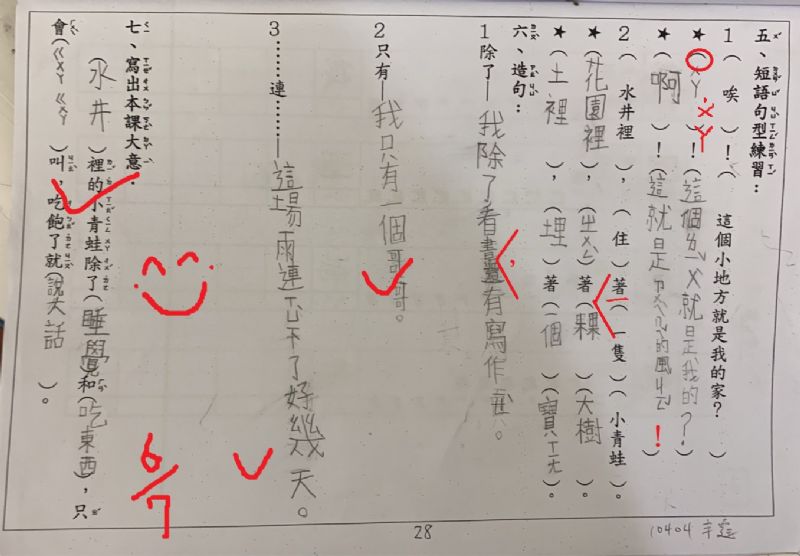 五、短語句型練習：
1（唉）！（這個小地方就是我的家？）
★（ㄚ）！（這個ㄅㄠㄨ就是我的？）
·ㄨㄚ
★（啊）！（這就是的風！）
2（水井裡），（住）著（一隻）（小青蛙）。
★（花園裡），（出ㄙ）著（一棵）（大樹）。
★（土裡），（埋）著（一個）（寶ㄒㄤ）。
六、造句：
1除了—我除了看書，有寫作業。
2只有—我只有一個哥哥。
3……連……—這場雨連下了好幾天。
七、寫出本課大意：
（水井）裡的小青蛙除了（睡覺和（吃東西），只
會（ㄍㄨㄚ ㄍㄨㄚ）叫，吃飽了就（說大話）。
6/7
28
10404